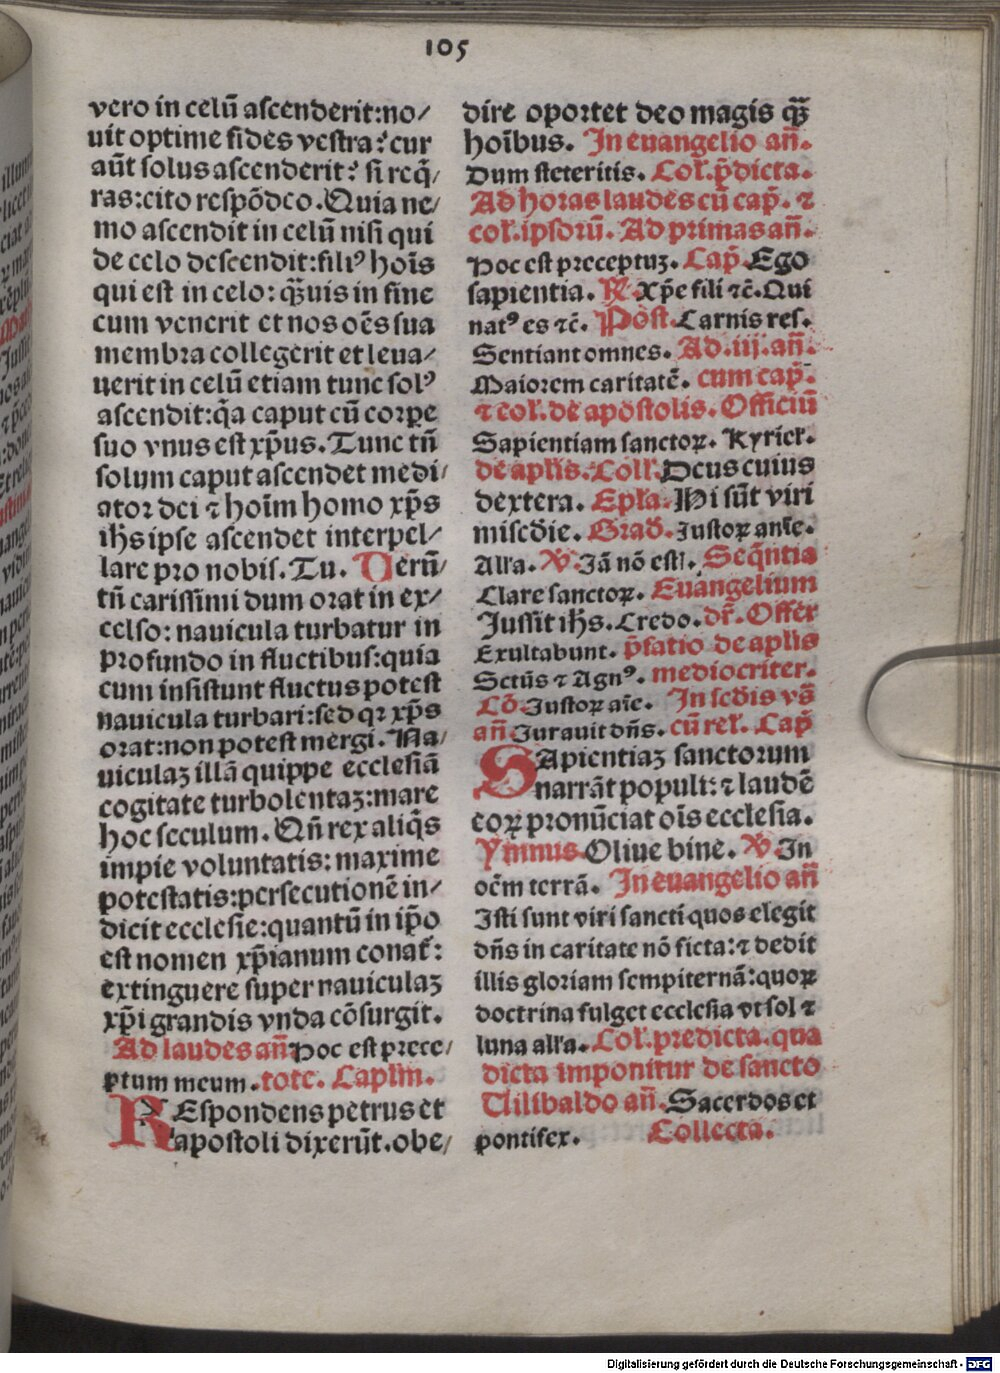 105
vero in celū ascenderit:no/
uit optime fides vestra? cur
aūt solus ascenderit? si req̄/
ras:cito respōdeo. Quia ne/
mo ascendit in celū nisi qui
de celo descendit:filiꝰ hoīs
qui est in celo: q̄uis in fine
cum venerit et nos oēs sua
membra collegerit et leua/
uerit in celū etiam tunc solꝰ
ascendit:q̄a caput cū corpe
suo vnus est xp̄us. Tunc tn̄
solum caput ascendet medi/
ator dei ⁊ hoīm homo xp̄s
ih̄s ipse ascendet interpel/
lare pro nobis. Tu. Uerū/
tn̄ carissimi dum orat in ex/
celso: nauicula turbatur in
profundo in fluctibus:quia
cum insistunt fluctus potest
nauicula turbari:sed qꝛ xp̄s
orat:non potest mergi. Na/
uiculaꝫ illā quippe ecclesiā
cogitate turbolentaꝫ:mare
hoc seculum. Qn̄ rex aliq̄s
impie voluntatis: maxime
potestatis:persecutionē in/
dicit ecclesie:quantū in ip̄o
est nomen xp̄ianum conat̄:
extinguere super nauiculaꝫ
xp̄i grandis vnda cōsurgit.
Ad laudes an̄ Hoc est prece/
ptum meum. tote. Caplm̄.
REspondens petrus et
apostoli dixerūt. obe/
dire oportet deo magis q̄ꝫ
hoībus. In euangelio an̄.
Dum steteritis. Col̄. p̄dicta.
Ad horas laudes cū cap̄. ⁊
col̄. ipsorū. Ad primas an̄.
Hoc est preceptuꝫ. Cap̄. Ego
sapientia. ℟. Xp̄e fili ⁊c̄. Qui
natꝰ es ⁊c̄. Post. Carnis res.
Sentiant omnes. Ad .iij. an̄.
Maiorem caritatē. cum cap̄.
⁊ col̄. de apostolis. Officiū
Sapientiam sanctoꝝ. Kyriel̄.
de aplis. Coll̄. Deus cuius
dextera. Epl̄a. Hi sūt viri
miscd̄ie. Grad̄. Justoꝝ anīe.
All̄a. ℣. Jā nō esti. Seq̄ntia
Clare sanctoꝝ. Euangelium
Jussit ih̄s. Credo. dr̄. Offer
Exultabunt. p̄fatio de aplis
Sctūs ⁊ Agnꝰ. mediocriter.
Cō. Justoꝝ aīe. In scd̄is vs̄
an̄ Jurauit dn̄s. cū rel̄. Cap̄
SApientiaꝫ sanctorum
narrāt populi: ⁊ laudē
eoꝝ pronūciat oīs ecclesia.
Ymnus. Oliue bine. ℣. In
oēm terrā. In euangelio an̄
Isti sunt viri sancti quos elegit
dn̄s in caritate nō ficta:⁊ dedit
illis gloriam sempiternā:quoꝝ
doctrina fulget ecclesia vt sol ⁊
luna all̄a. Col̄. predicta. qua
dicta imponitur de sancto
Uilibaldo an̄. Sacerdos et
pontifex. Collecta.
Digitalisierung gefördert durch die Deutsche Forschungsgemeinschaft - DFG